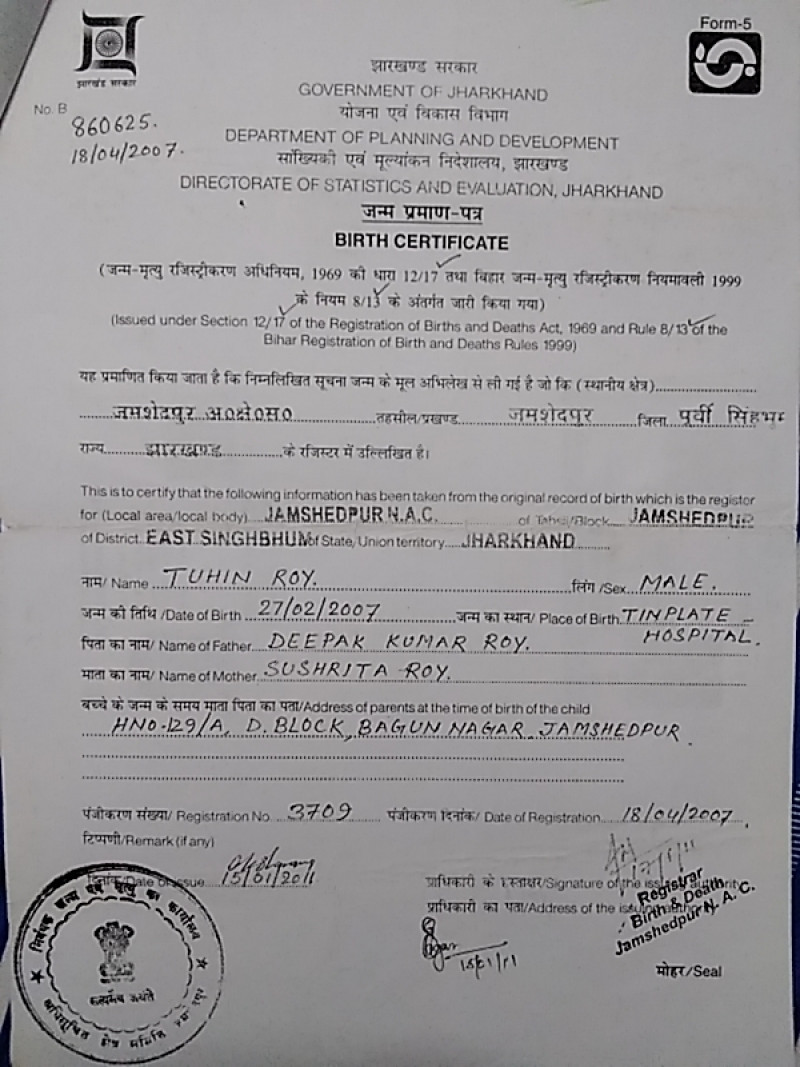 झारखंड सरकार
Form-5
झारखण्ड सरकार
GOVERNMENT OF JHARKHAND
योजना एवं विकास विभाग
No. B
860625.
DEPARTMENT OF PLANNING AND DEVELOPMENT
18/04/2007.
सांख्यिकी एवं मूल्यांकन निदेशालय, झारखण्ड
DIRECTORATE OF STATISTICS AND EVALUATION, JHARKHAND
जन्म प्रमाण-पत्र
BIRTH CERTIFICATE
(जन्म-मृत्यु रजिस्ट्रीकरण अधिनियम, 1969 की धारा 12/17 तथा बिहार जन्म-मृत्यु रजिस्ट्रीकरण नियमावली 1999
के नियम 8/13 के अंतर्गत जारी किया गया)
(Issued under Section 12/17 of the Registration of Births and Deaths Act, 1969 and Rule 8/13 of the
Bihar Registration of Birth and Deaths Rules 1999)
यह प्रमाणित किया जाता है कि निम्नलिखित सूचना जन्म के मूल अभिलेख से ली गई है जो कि (स्थानीय क्षेत्र)
जमशेदपुर अ०क्षे०स० तहसील/प्रखण्ड जमशेदपुर जिला पूर्वी सिंहभूम
राज्य झारखण्ड के रजिस्टर में उल्लिखित है।
This is to certify that the following information has been taken from the original record of birth which is the register
for (Local area/local body) JAMSHEDPUR N.A.C. of Tahsi/Block JAMSHEDPUR
of District EAST SINGHBHUM of State/Union territory JHARKHAND
नाम/ Name TUHIN ROY. लिंग /Sex MALE.
जन्म की तिथि /Date of Birth 27/02/2007 जन्म का स्थान/ Place of Birth TINPLATE
HOSPITAL.
पिता का नाम/ Name of Father DEEPAK KUMAR ROY.
माता का नाम/ Name of Mother SUSHRITA ROY.
बच्चे के जन्म के समय माता पिता का पता/Address of parents at the time of birth of the child
HNO-129/A, D. BLOCK, BAGUN NAGAR JAMSHEDPUR.
पंजीकरण संख्या/ Registration No. 3709 पंजीकरण दिनांक/ Date of Registration 18/04/2007
टिप्पणी/Remark (if any)
दिनांक/Date of Issue 15/01/2011
प्राधिकारी के हस्ताक्षर/Signature of the issuing authority
प्राधिकारी का पता/Address of the issuing authority
Registrar
Birth & Death
Jamshedpur N. A. C.
15/01/11
मोहर/Seal
निबंधक जन्म एवं मृत्यु का कार्यालय
सत्यमेव जयते
अधिसूचित क्षेत्र समिति